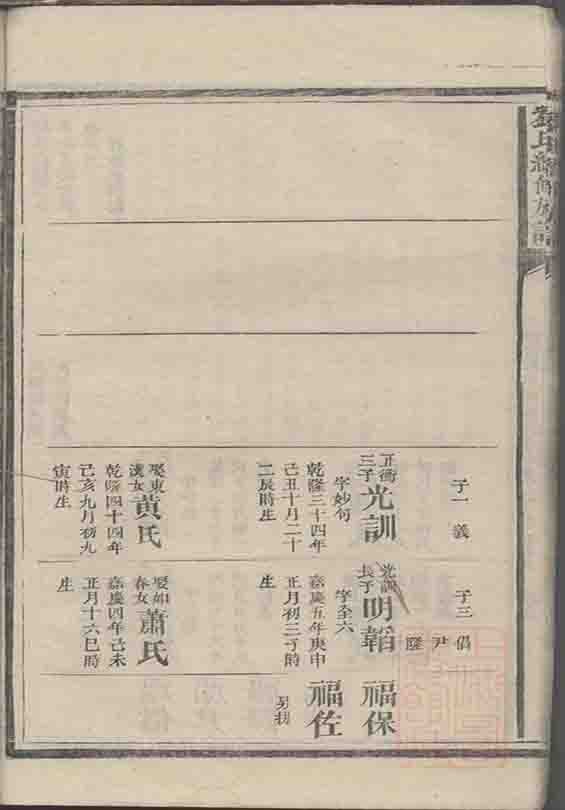 氏續修族譜
子一 義
正衡三子光訓
字妙句
乾隆三十四年
己丑十月二十
二辰時生
娶東
漢女黃氏
乾隆四十四年
己亥九月初九
寅時生
子三 倡
尹
隆
光訓長子明韜
字全六
嘉慶五年庚申
正月初三子時
生
娶如
春女蕭氏
嘉慶四年己未
正月十六巳時
生
福保
福佐
另找